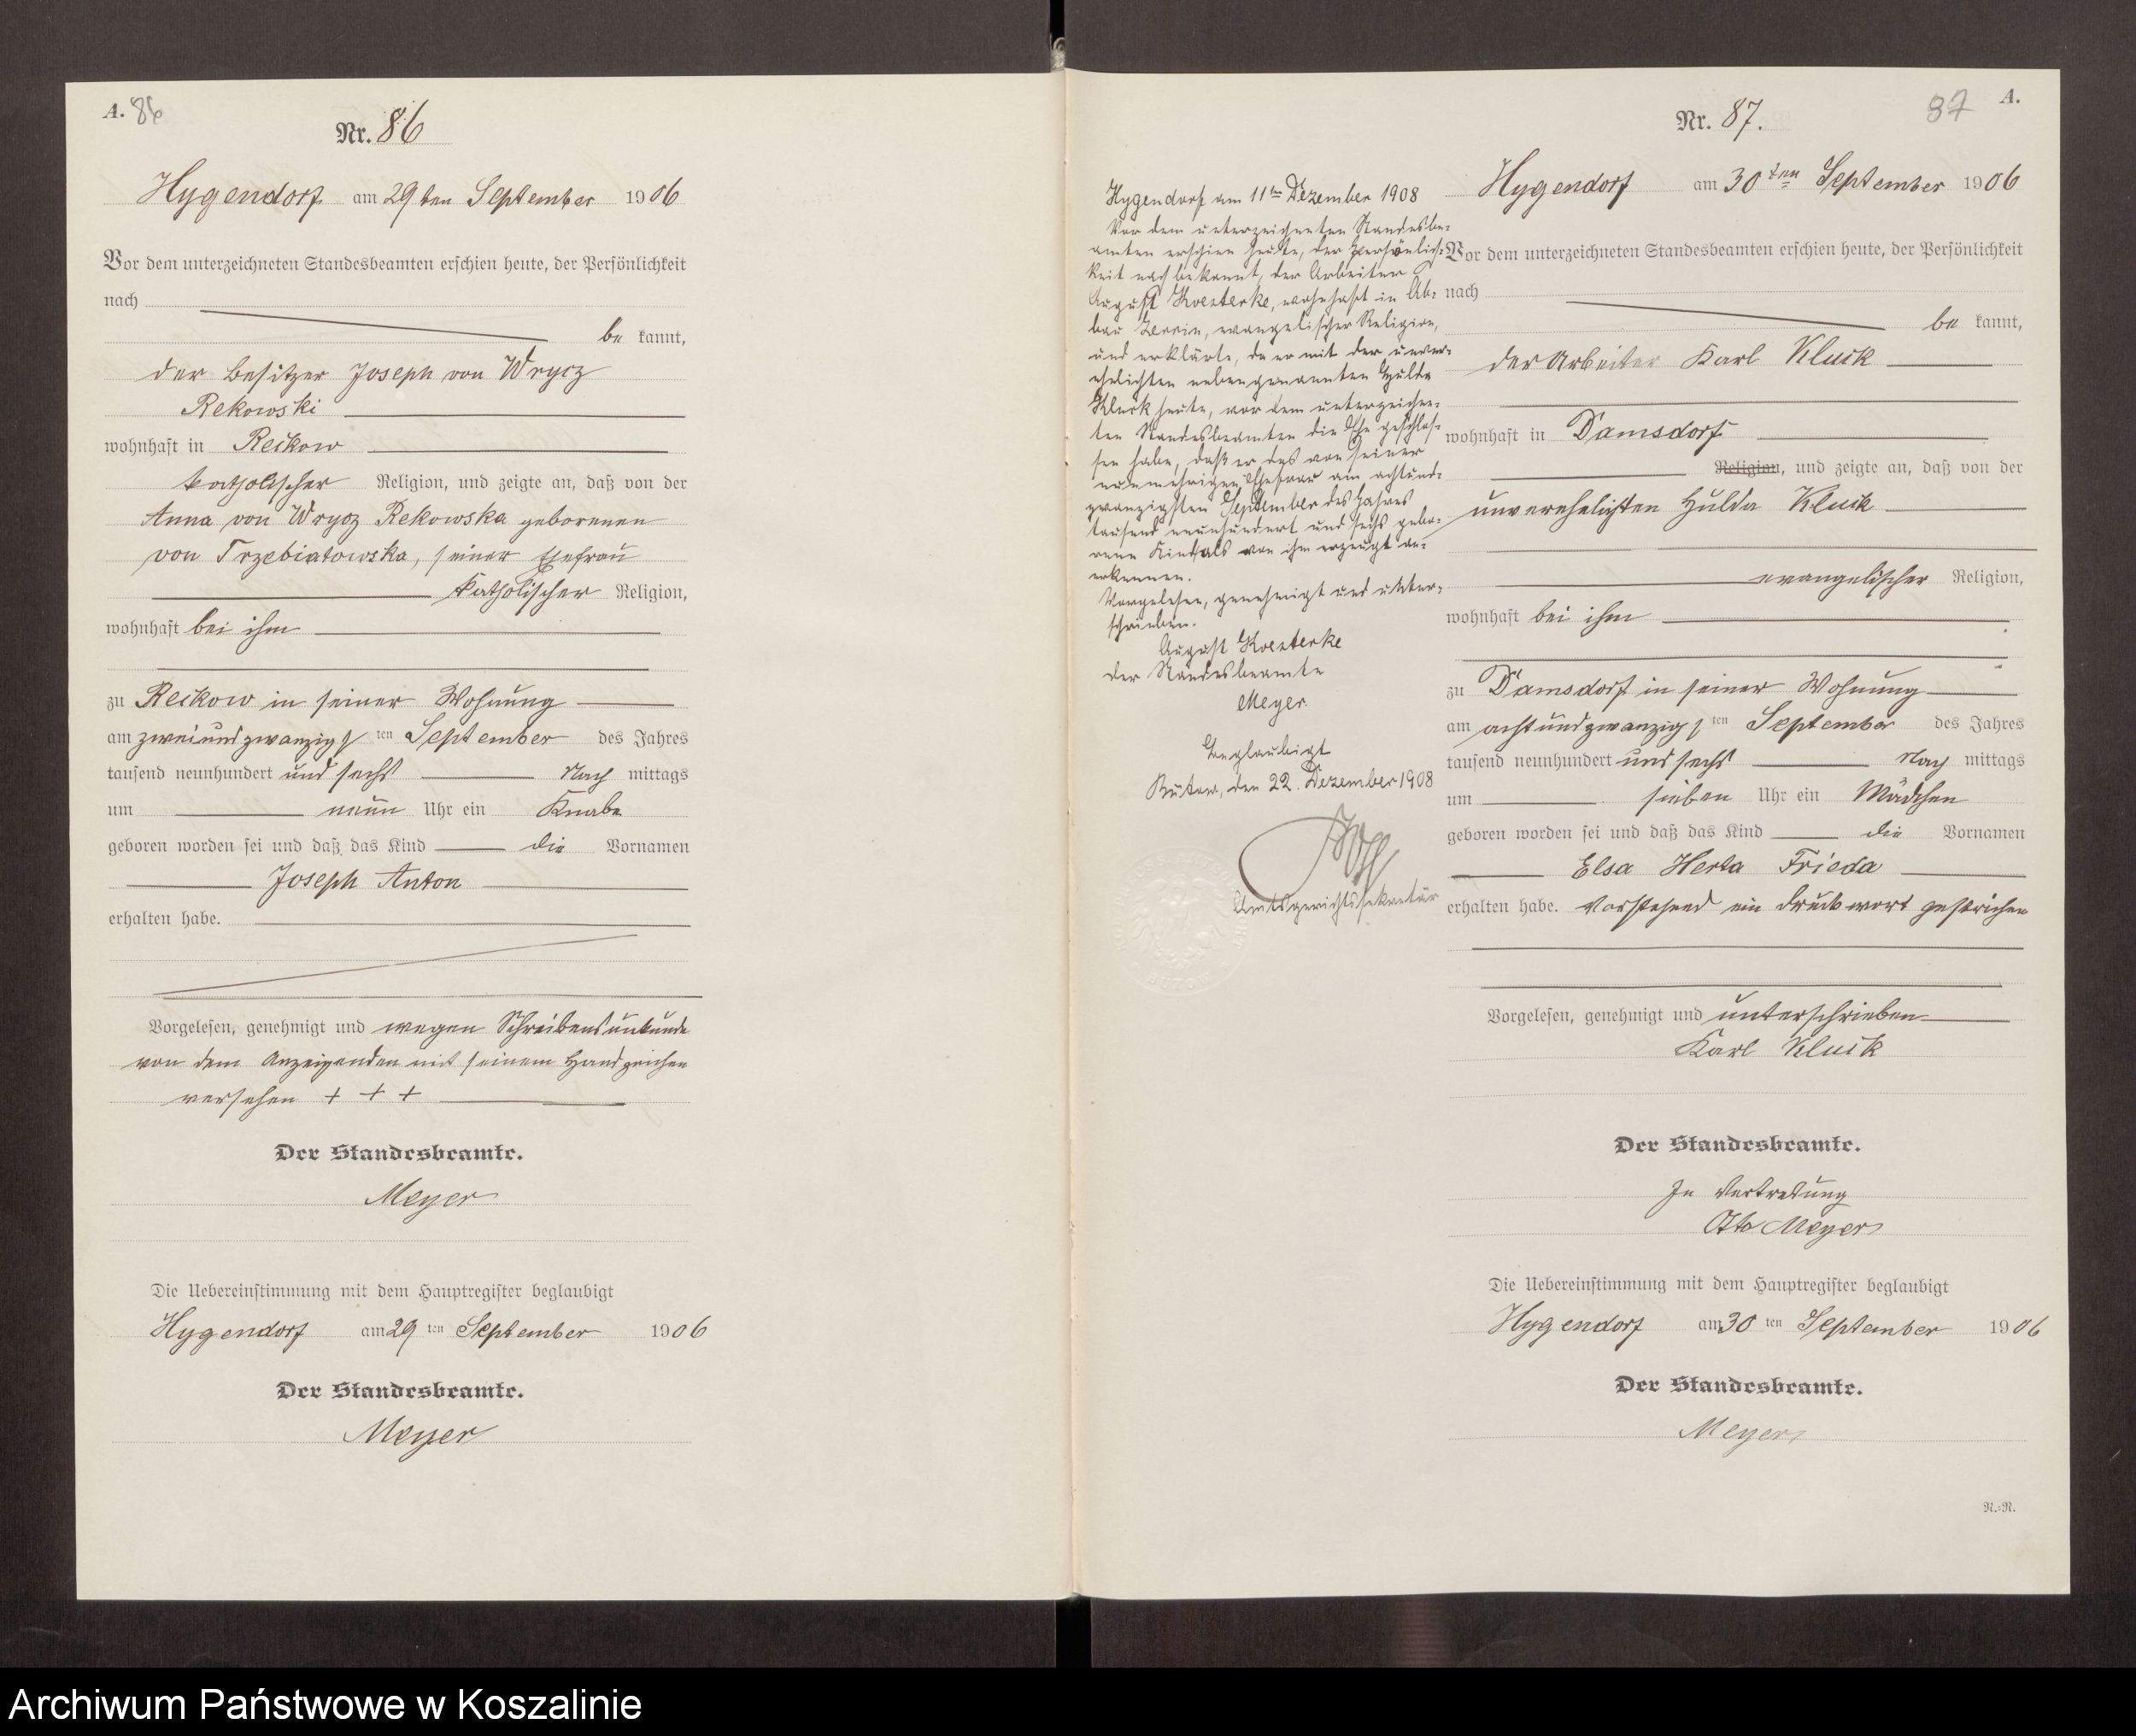 A. 86
Nr. 86
Hygendorf am 29ten September 1906
Vor dem unterzeichneten Standesbeamten erschien heute, der Persönlichkeit
nach
be kannt,
der Besitzer Joseph von Wrycz
Rekowski
wohnhaft in Reckow
katholischer Religion, und zeigte an, daß von der
Anna von Wrycz Rekowska geborenen
von Trzebiatowska, seiner Ehefrau
katholischer Religion,
wohnhaft bei ihm
zu Reckow in seiner Wohnung
am zweiundzwanzigsten September des Jahres
tausend neunhundert und sechs Nach mittags
um neun Uhr ein Knabe
geboren worden sei und daß das Kind die Vornamen
Joseph Anton
erhalten habe.
Vorgelesen, genehmigt und wegen Schreibensunkunde
von dem Anzeigenden mit seinem Handzeichen
versehen + + +
Der Standesbeamte.
Meyer
Die Uebereinstimmung mit dem Hauptregister beglaubigt
Hygendorf am 29 ten September 1906
Der Standesbeamte.
Meyer
Hygendorf am 11ten Dezember 1908
Vor dem unterzeichneten Standesbe-
amten erschien heute, der Persönlich-
keit nach bekannt, der Arbeiter
August Koesterke, wohnhaft in Ab-
bau Zerrin, evangelischer Religion,
und erklärte, da er mit der unver-
ehelichten nebengenannten Hulda
Kluck heute, vor dem unterzeichne-
ten Standesbeamten die Ehe geschlos-
sen habe, daß er das von seiner
nunmehrigen Ehefrau am achtund-
zwanzigsten September des Jahres
tausend neunhundert und sechs gebo-
rene Kind als von ihm erzeugt an-
erkennen.
Vorgelesen, genehmigt und unter-
schrieben.
August Koesterke
Der Standesbeamte
Meyer
Beglaubigt
Bütow, den 22. Dezember 1908
Amtsgerichtssekretär
87 A.
Nr. 87.
Hygendorf am 30ten September 1906
Vor dem unterzeichneten Standesbeamten erschien heute, der Persönlichkeit
nach
be kannt,
der Arbeiter Karl Kluck
wohnhaft in Damsdorf
Religion, und zeigte an, daß von der
unverehelichten Hulda Kluck
evangelischer Religion,
wohnhaft bei ihm
zu Damsdorf in seiner Wohnung
am achtundzwanzigsten September des Jahres
tausend neunhundert und sechs Nach mittags
um sieben Uhr ein Mädchen
geboren worden sei und daß das Kind die Vornamen
Elsa Herta Frieda
erhalten habe. Vorstehend ein Druckwort gestrichen
Vorgelesen, genehmigt und unterschrieben
Karl Kluck
Der Standesbeamte.
In Vertretung
Otto Meyer
Die Uebereinstimmung mit dem Hauptregister beglaubigt
Hygendorf am 30 ten September 1906
Der Standesbeamte.
Meyer
N.-N.
Archiwum Państwowe w Koszalinie